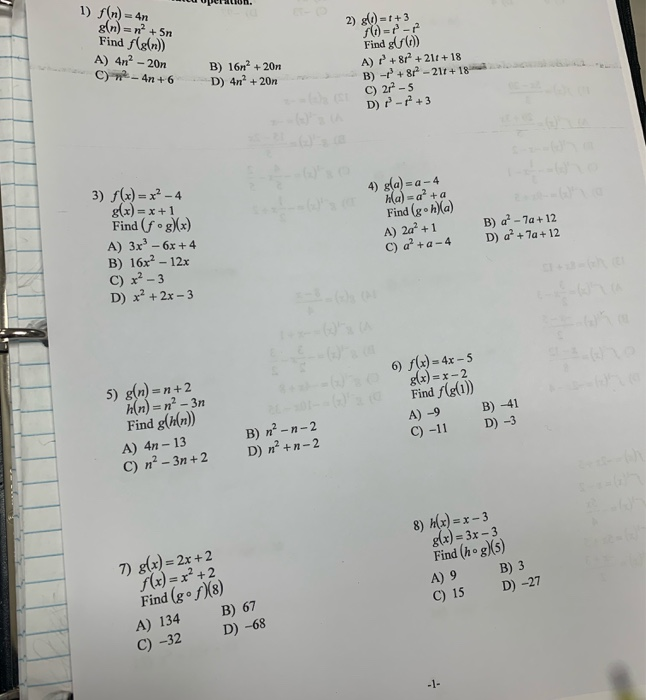 operation.
1) f(n) = 4n
g(n) = n² + 5n
Find f(g(n))
A) 4n² – 20n
B) 16n² + 20n
C) n² – 4n + 6
D) 4n² + 20n
2) g(t) = t + 3
f(t) = t³ – t²
Find g(f(t))
A) t³ + 8t² + 21t + 18
B) –t³ + 8t² – 21t + 18
C) 2t² – 5
D) t³ – t² + 3
3) f(x) = x² – 4
g(x) = x + 1
Find (f ∘ g)(x)
A) 3x³ – 6x + 4
B) 16x² – 12x
C) x² – 3
D) x² + 2x – 3
4) g(a) = a – 4
h(a) = a² + a
Find (g ∘ h)(a)
A) 2a² + 1
B) a² – 7a + 12
C) a² + a – 4
D) a² + 7a + 12
5) g(n) = n + 2
h(n) = n² – 3n
Find g(h(n))
A) 4n – 13
B) n² – n – 2
C) n² – 3n + 2
D) n² + n – 2
6) f(x) = 4x – 5
g(x) = x – 2
Find f(g(1))
A) –9
B) –41
C) –11
D) –3
7) g(x) = 2x + 2
f(x) = x² + 2
Find (g ∘ f)(8)
A) 134
B) 67
C) –32
D) –68
8) h(x) = x – 3
g(x) = 3x – 3
Find (h ∘ g)(5)
A) 9
B) 3
C) 15
D) –27
-1-